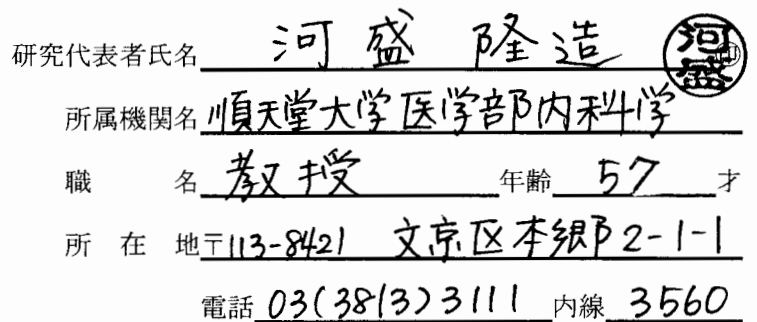 研究代表者氏名 河盛 隆造 河盛 印
所属機関名 順天堂大学医学部内科学
職 名 教授 年齢 57 才
所 在 地 〒113-8421 文京区本郷2-1-1
電話 03(3813)3111 内線 3560